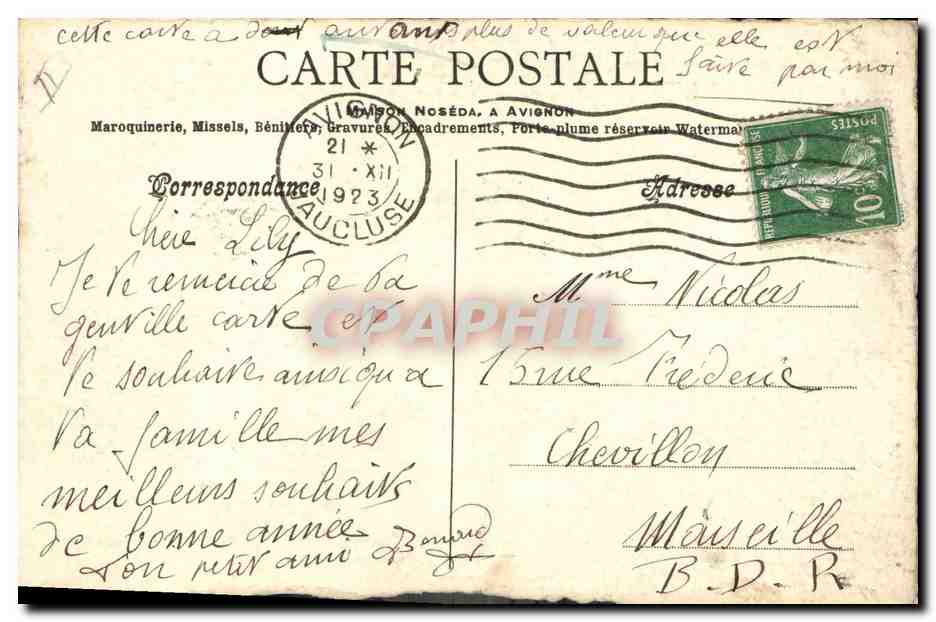 cette carte a d'autant plus de valeur que elle est
faite par moi
CARTE POSTALE
MAISON NOSÉDA, A AVIGNON
Maroquinerie, Missels, Bénitiers, Gravures, Encadrements, Porte-plume réservoir Waterma
AVIGNON
21 *
31 - XII
1923
VAUCLUSE
REPUBLIQUE FRANÇAISE
POSTES
10c
Correspondance
Adresse
Chère Lily
Je te remercie de ta
gentille carte et
te souhaite ainsi qu'a
ta famille mes
meilleurs souhaits
de bonne année
Ton petit ami
CPAPHIL
Mme Nicolas
15 rue Frédéric
Chevillon
Marseille
B-D-R